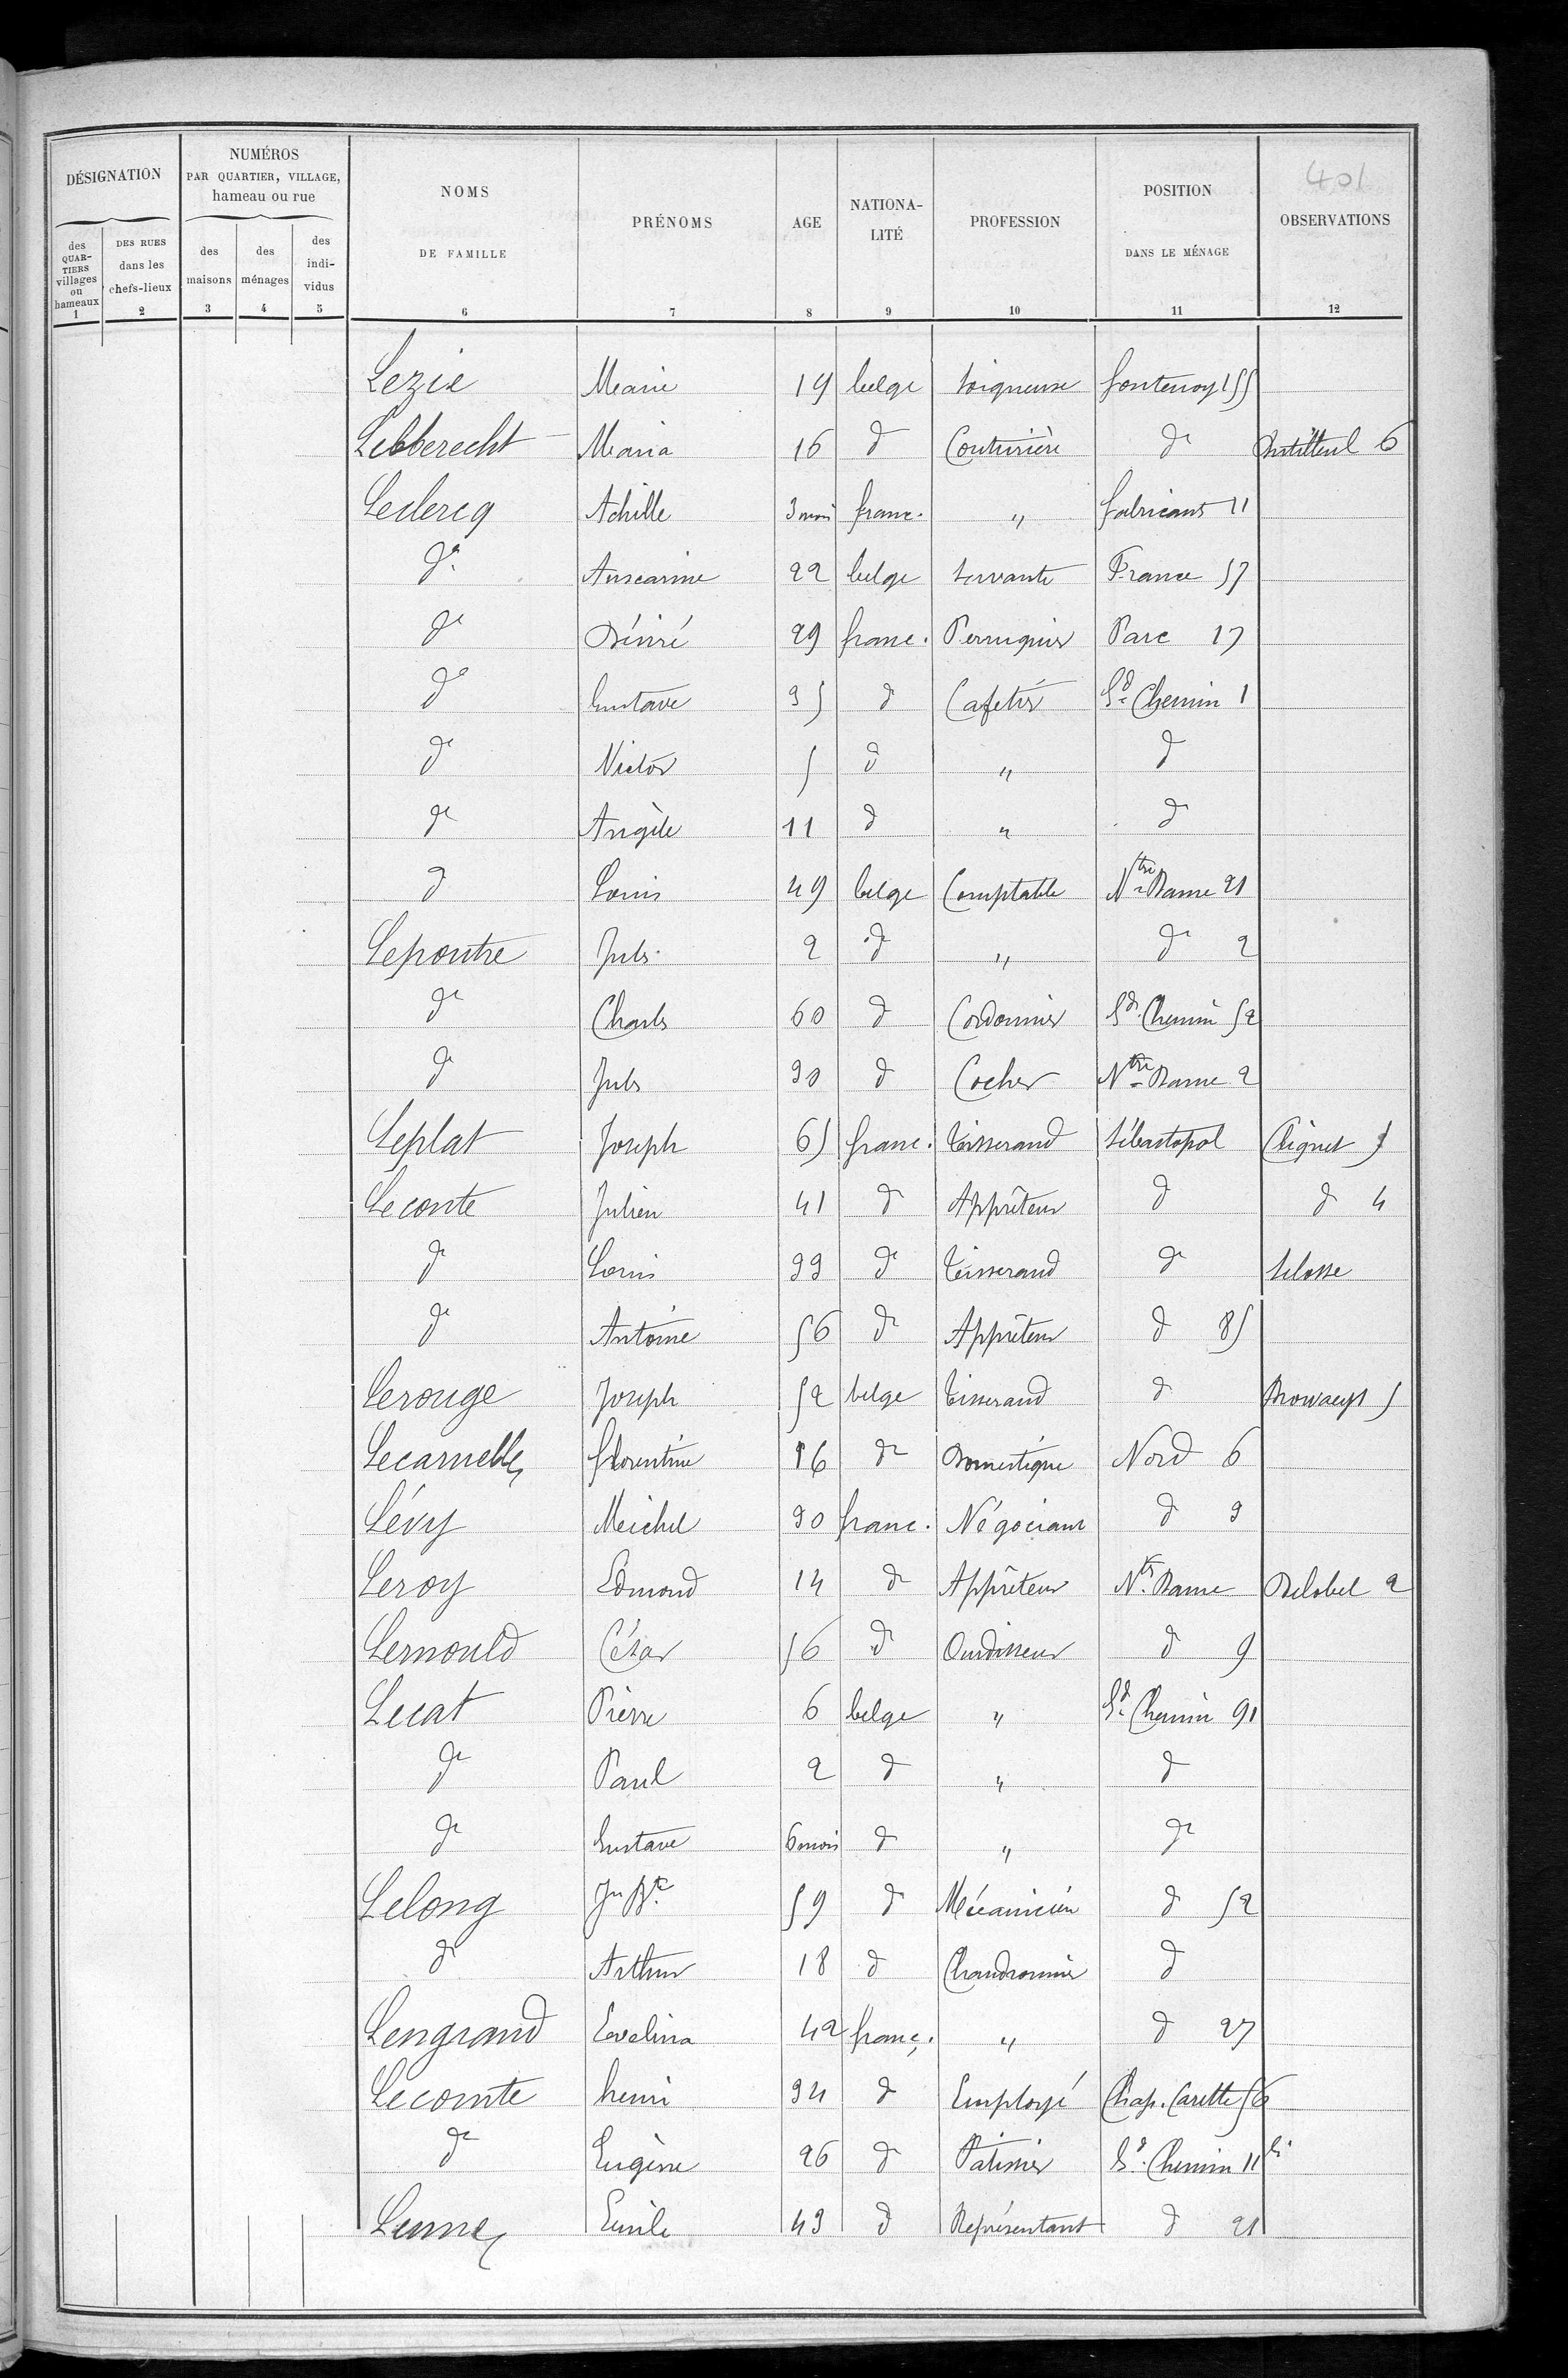 401
DÉSIGNATION
NUMÉROS
PAR QUARTIER, VILLAGE,
hameau ou rue
NOMS
DE FAMILLE
PRÉNOMS
AGE
NATIONA-
LITÉ
PROFESSION
POSITION
DANS LE MÉNAGE
OBSERVATIONS
des
QUAR-
TIERS
villages
ou
hameaux
DES RUES
dans les
chefs-lieux
des
maisons
des
ménages
des
indi-
vidus
1 2 3 4 5 6 7 8 9 10 11 12
Lezie Marie 19 belge Soigneuse Fontenoy 155
Lebberecht Maria 16 d° Couturière d° 6
Leclercq Achille 3 mois franc. " Fabricants 11
d° 22 belge Servante France 57
d° Désiré 29 franc. Perruquier Parc 17
d° Gustave 35 d° Cafetier Gd Chemin 1
d° Victor 5 d° " d°
d° Angèle 11 d° " d°
d° Louis 49 belge Comptable Ntre Dame 21
Lepoutre Jules 2 d° " d° 2
d° Charles 60 d° Cordonnier Gd Chemin 52
d° Jules 30 d° Cocher Ntre Dame 2
Leplat Joseph 65 franc. Tisserand Sébastopol Clignet
Leconte Julien 41 d° Apprêteur d° d° 4
d° Louis 33 d° Tisserand d° Selosse
d° Antoine 56 d° Apprêteur d° 85
Lerouge Joseph 52 belge Tisserand d° Browaeys 5
Lecarnelle Florentine 16 d° Domestique Nord 6
Lévy Meichel 30 franc. Négociant d° 3
Leroy Edmond 14 d° Apprêteur Nt. Dame Delobel 2
Lernould Cézar 56 d° Ourdisseur d° 9
Lecat Pierre 6 belge " Gd Chemin 91
d° Paul 2 d° " d°
d° Gustave 6 mois d° " d°
Lelong Jn Bte 59 d° Mécanicien d° 52
d° Arthur 18 d° Chaudronnier d°
Lengrand Evelina 42 franç. " d° 27
Lecomte henri 34 d° Employé Chap. Carette 56
d° Eugène 26 d° Patissier Gd Chemin 11 bis
Lemme Emile 43 d° Représentant d° 21